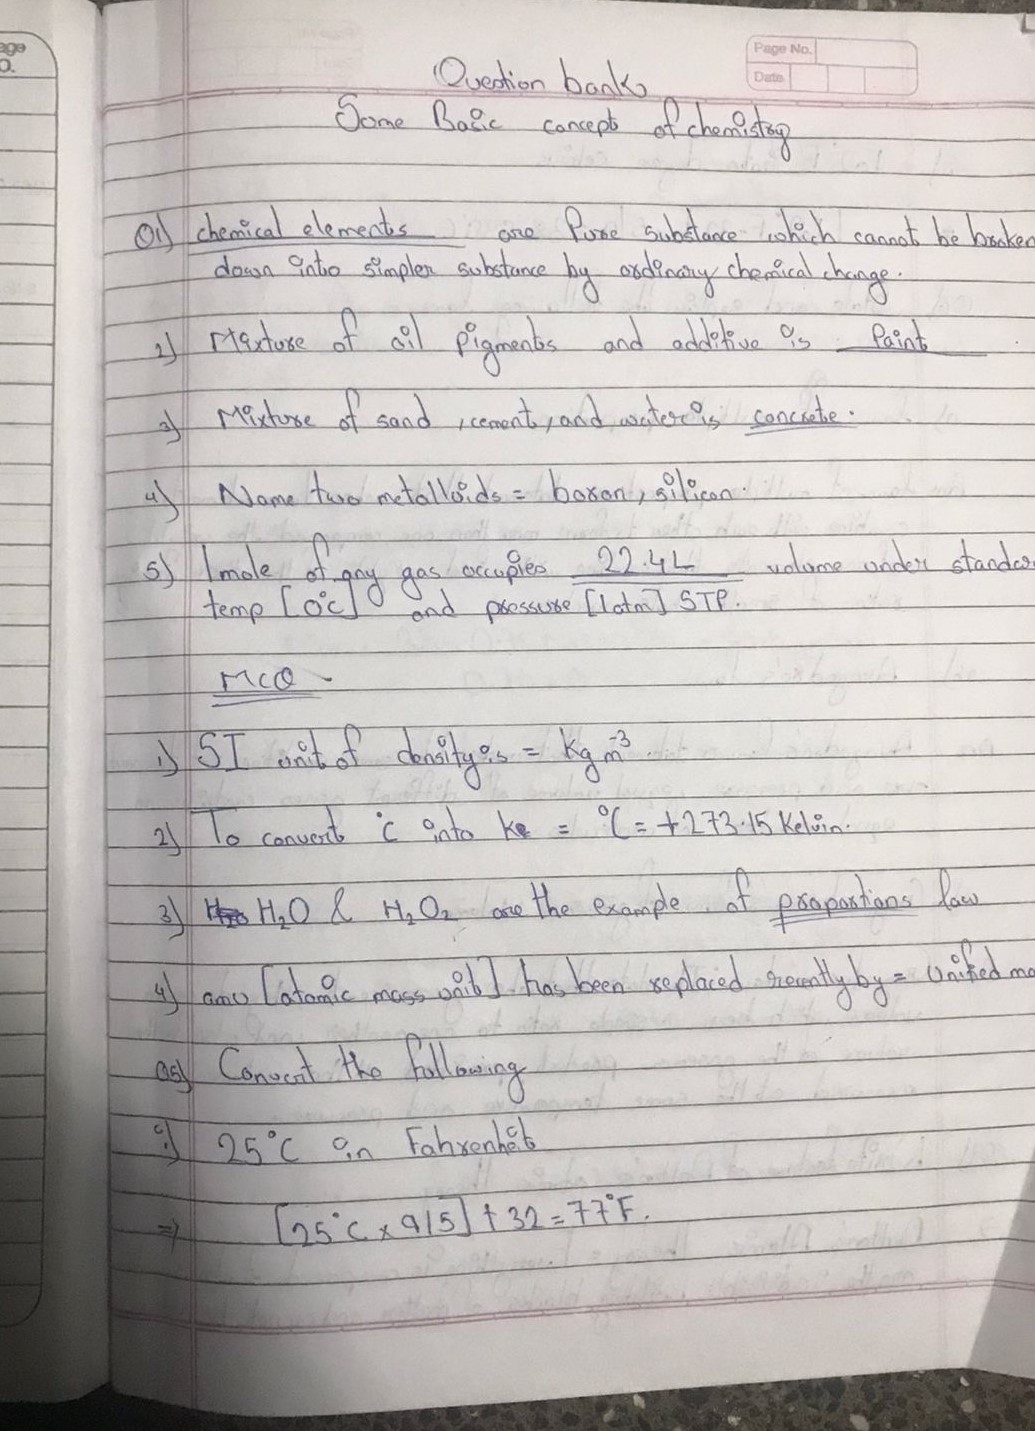 age
o.
Page No.
Date
Question bank
Some Basic concept of chemistry
Q1) chemical elements are Pure substance which cannot be broken
down into simpler substance by ordinary chemical change.
2) Mixture of oil pigments and additive is Paint
3) Mixture of sand , cement , and water is concrete.
4) Name two metalloids = boron, silicon.
5) 1 mole of any gas occupies 22.4L volume under standar
temp [0°C] and pressure [1atm] STP.
MCQ -
1) SI unit of density is = kg m⁻³
2) To convert °C into k = °C = +273.15 Kelvin.
3) H₂O & H₂O₂ are the example of proportions law
4) amu [atomic mass unit] has been replaced recently by = Unified ma
Q5) Convert the following
i) 25°C in Fahrenheit
⇒ [25°C x 9/5] + 32 = 77°F.